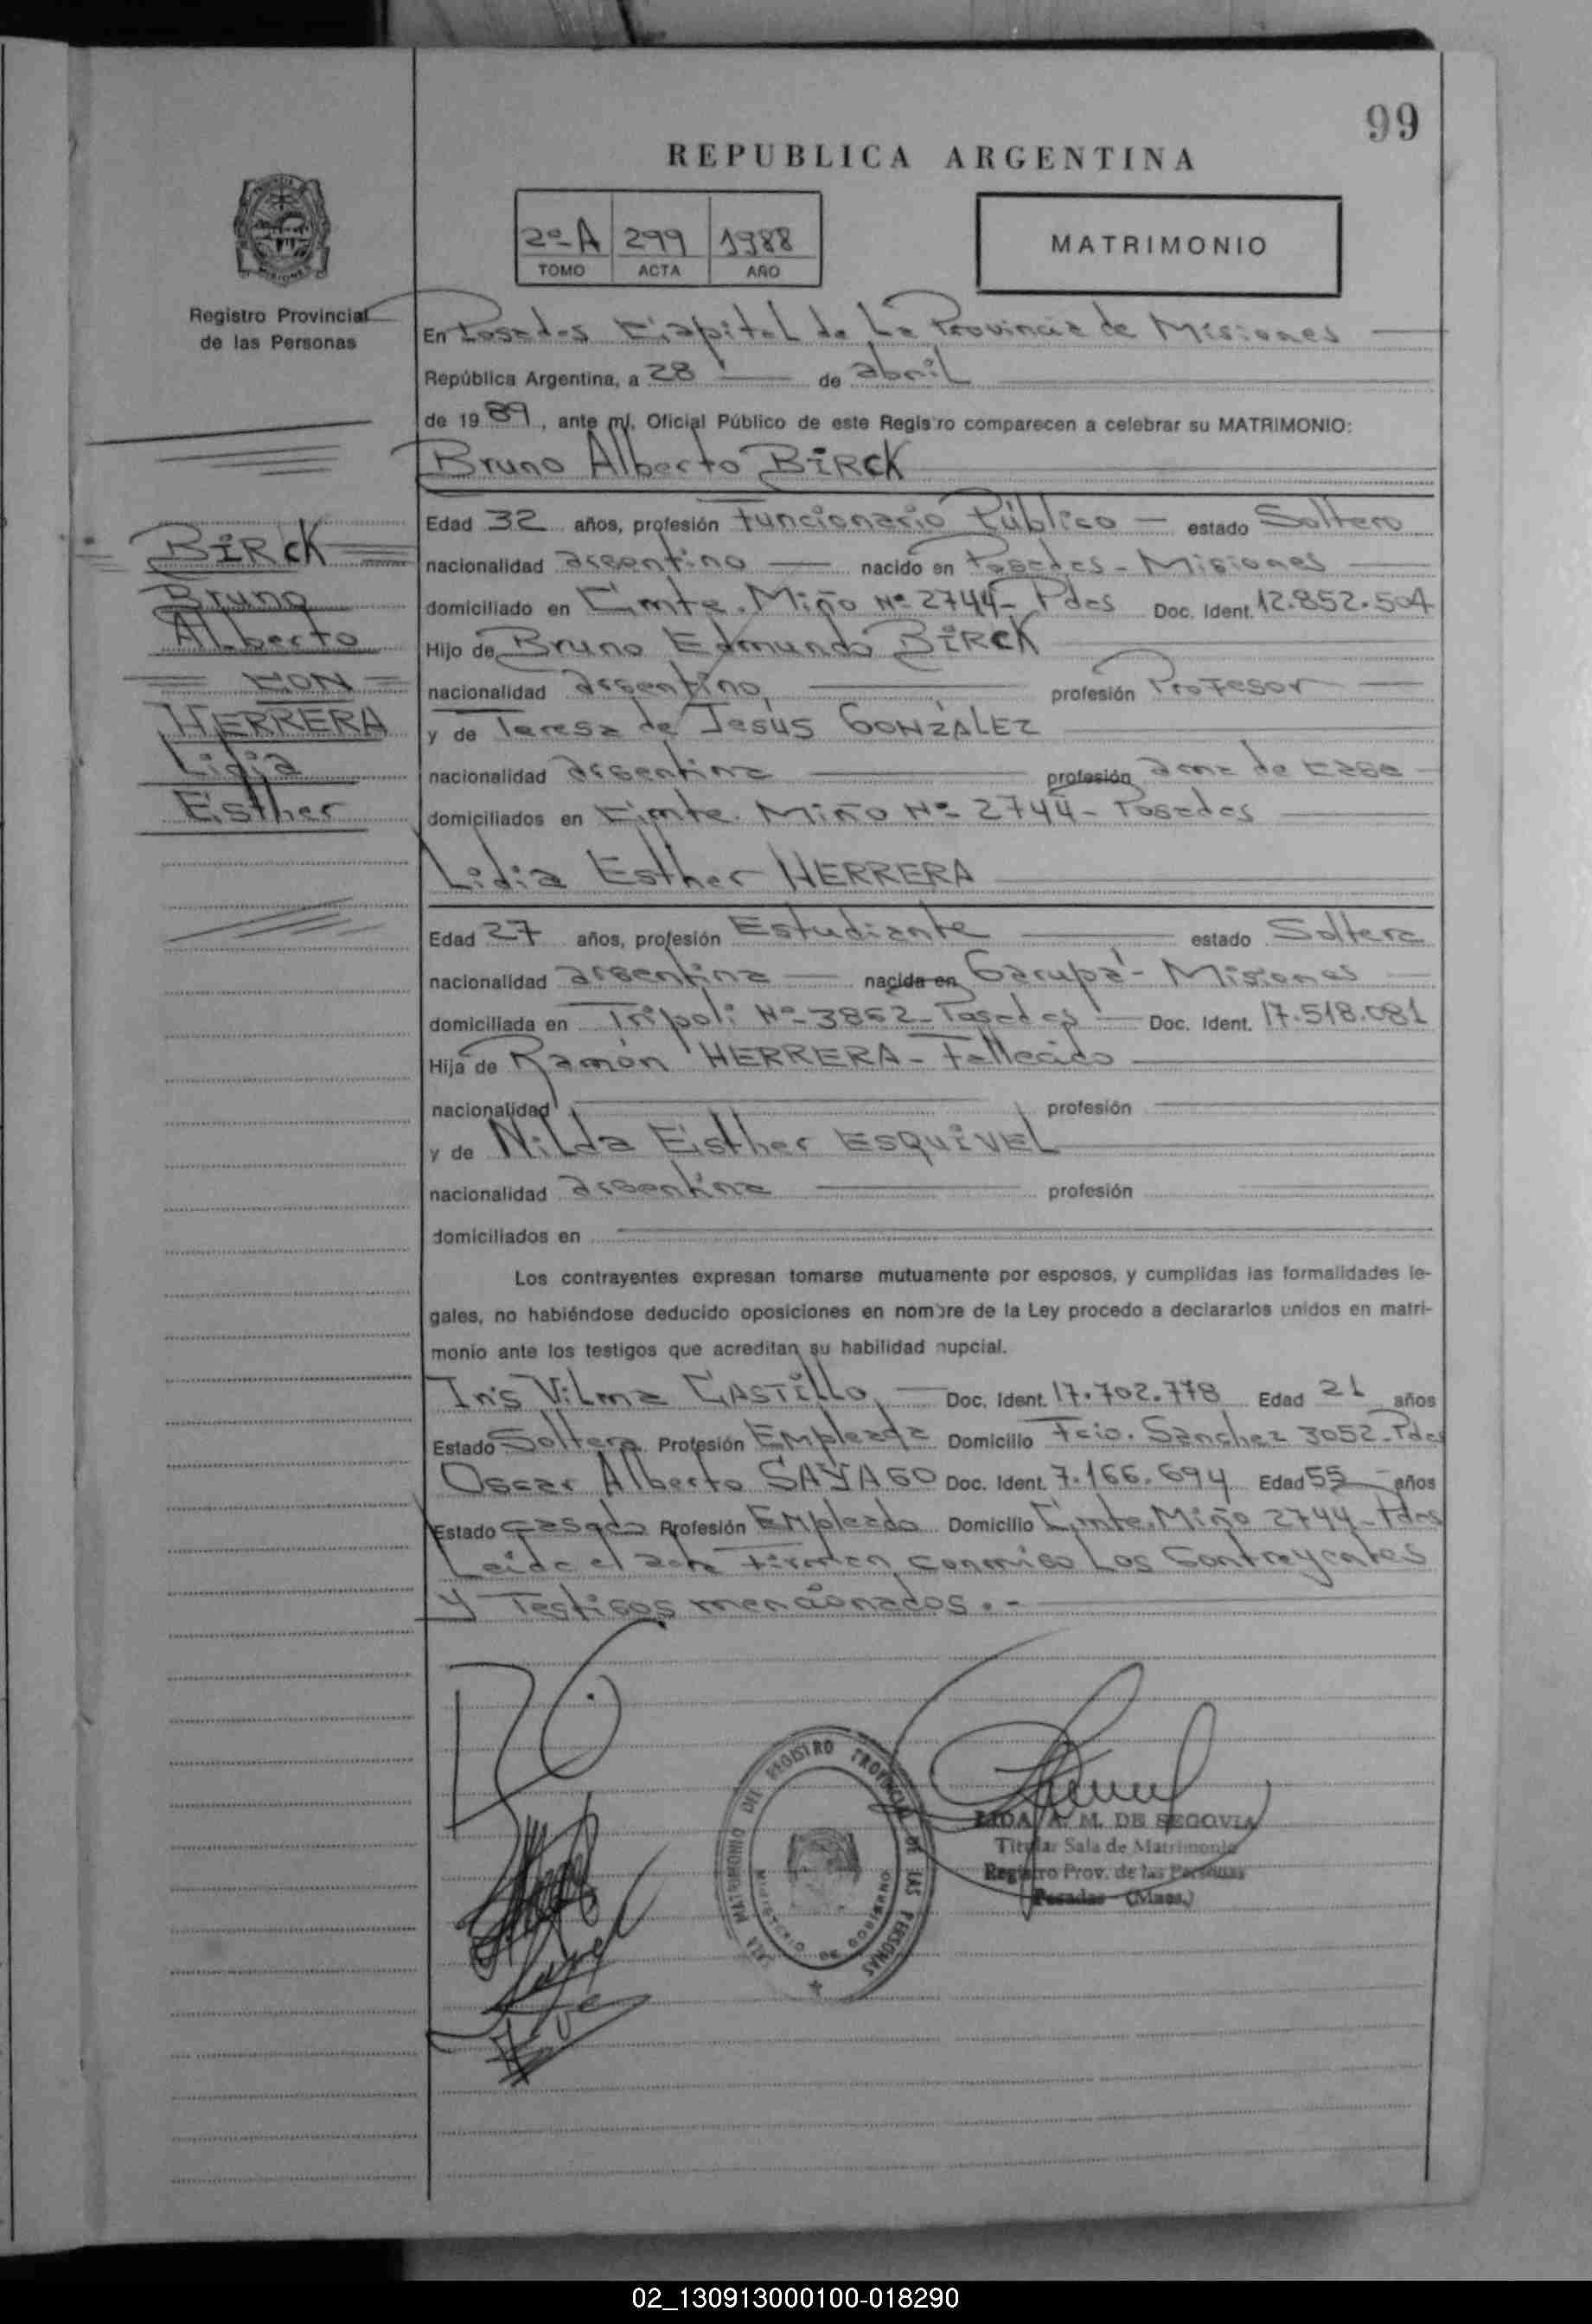 99
REPUBLICA ARGENTINA
2º-A 299 1988
TOMO ACTA AÑO
MATRIMONIO
Registro Provincial
de las Personas
En Posadas Capital de La Provincia de Misiones
República Argentina, a 28 de abril
de 1989, ante mí, Oficial Público de este Registro comparecen a celebrar su MATRIMONIO:
Bruno Alberto BIRCK
Edad 32 años, profesión Funcionario Público - estado Soltero
nacionalidad argentino nacido en Posadas - Misiones
domiciliado en Cmte. Miño Nº 2744 - Pdas Doc. Ident. 12.852.504
Hijo de Bruno Edmundo BIRCK
nacionalidad argentino, profesión Profesor
y de Teresa de Jesús GONZÁLEZ
nacionalidad argentina profesión ama de casa
domiciliados en Cmte. Miño Nº 2744 - Posadas
BIRCK
Bruno
Alberto
CON
HERRERA
Lidia
Esther
Lidia Esther HERRERA
Edad 27 años, profesión Estudiante estado Soltera
nacionalidad argentina nacida en Garupá - Misiones
domiciliada en Trípoli Nº 3862 - Posadas Doc. Ident. 17.518.081
Hija de Ramón HERRERA - Fallecido
nacionalidad profesión
y de Nilda Esther ESQUIVEL
nacionalidad argentina profesión
domiciliados en
Los contrayentes expresan tomarse mutuamente por esposos, y cumplidas las formalidades le-
gales, no habiéndose deducido oposiciones en nombre de la Ley procedo a declararlos unidos en matri-
monio ante los testigos que acreditan su habilidad nupcial.
Iris Vilma CASTILLO Doc. Ident. 17.702.778 Edad 21 años
Estado Soltera Profesión Empleada Domicilio Fcio. Sánchez 3052 - Pdas
Oscar Alberto SAYAGO Doc. Ident. 7.166.694 Edad 55 años
Estado Casado Profesión Empleado Domicilio Cmte. Miño 2744 - Pdas
Leida el acta firman conmigo Los Contrayentes
y Testigos mencionados. -
SALA MATRIMONIO DEL REGISTRO PROVINCIAL DE LAS PERSONAS
MINISTERIO DE GOBIERNO
LIDA A. M. DE SEGOVIA
Titular Sala de Matrimonio
Registro Prov. de las Personas
Posadas (Mnes.)
02_130913000100-018290